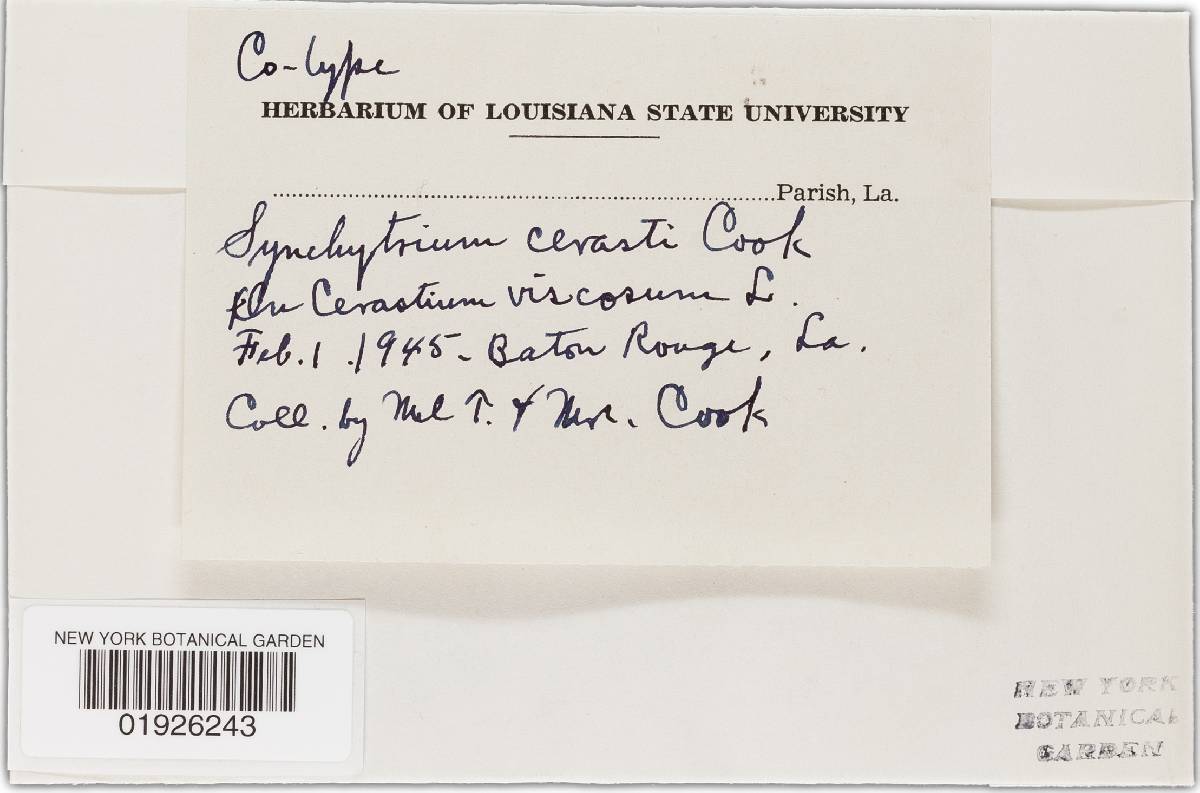 Co-type
HERBARIUM OF LOUISIANA STATE UNIVERSITY
Parish, La.
Synchytrium cerasti Cook
On Cerastium viscosum L.
Feb. 1. 1945 - Baton Rouge, La.
Coll. by Mel T. & Mrs. Cook
NEW YORK BOTANICAL GARDEN
01926243
NEW YORK
BOTANICAL
GARDEN